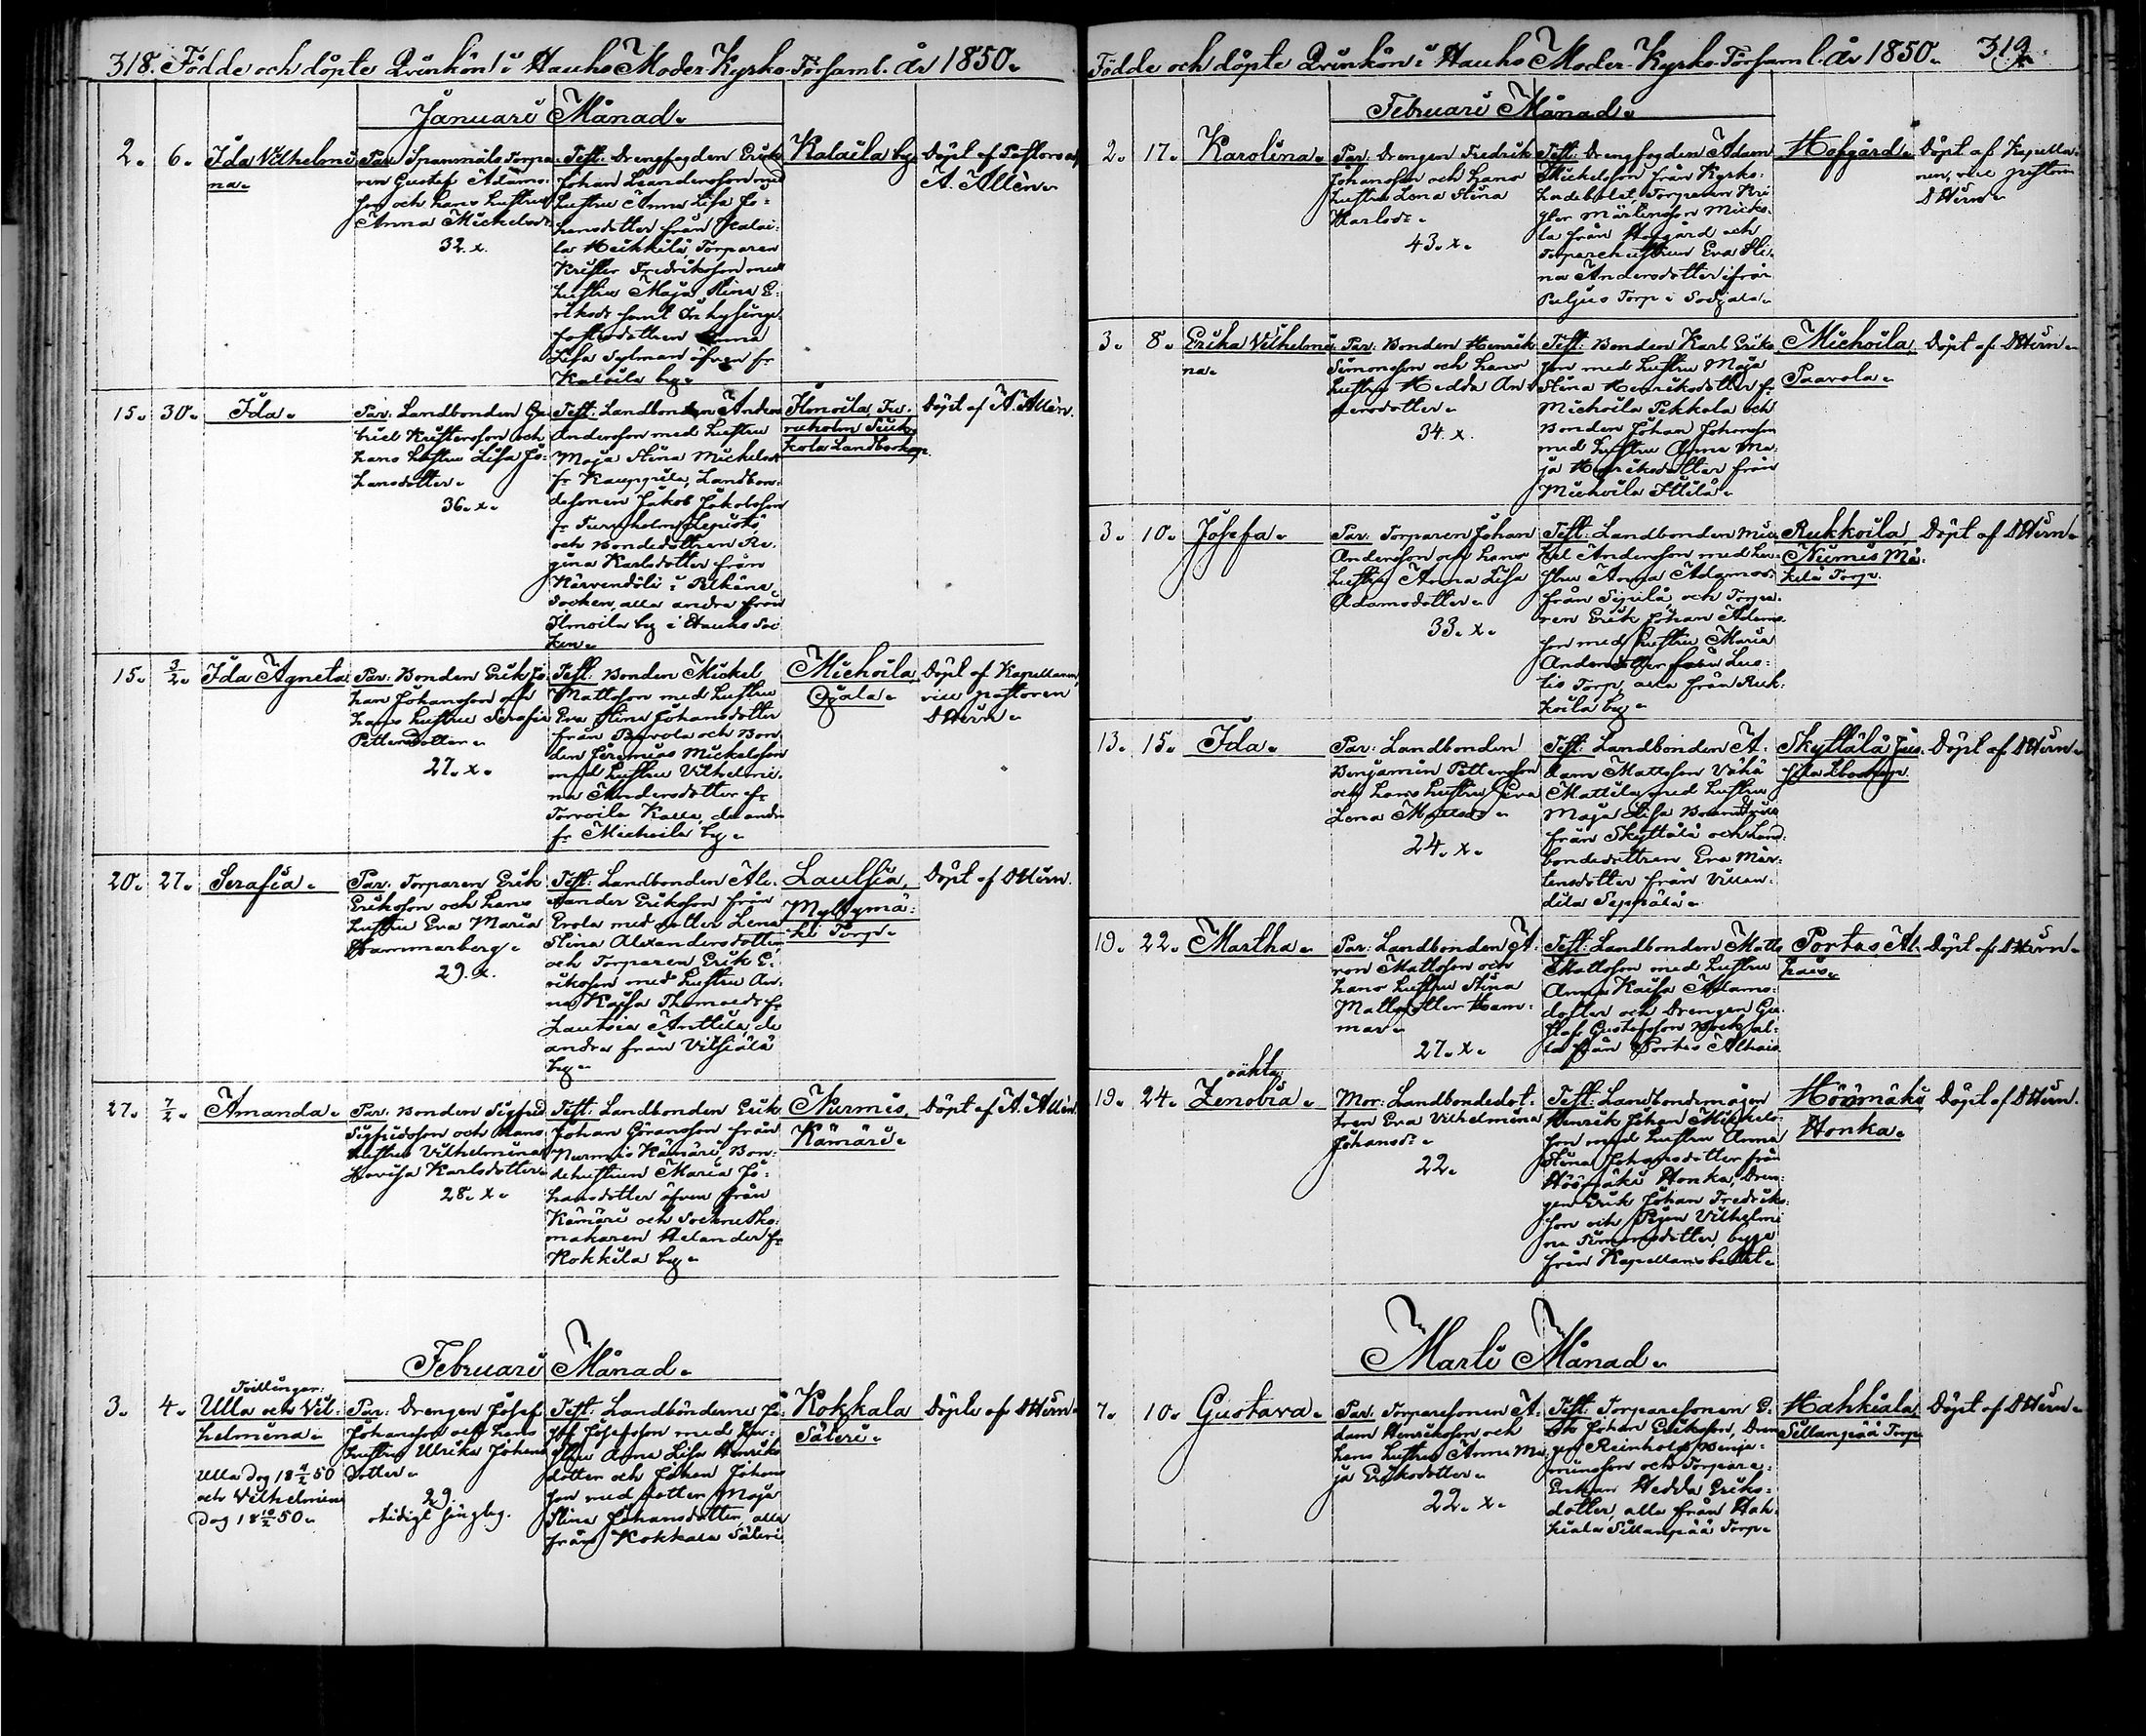 318. Födde och döpte Qvinkön i Hauho Moder Kyrko-Församl. år 1850.
Januari Månad.
2. 6.
Ida Vilhelmi
na.
Par: Spanmåls Torpa
ren Gustaf Adams
son och hans hustru
Anna Mickelsdr
32. x.
Test: Drengfogden Erik
Johan Leandersson med
hustru Anna Lisa Jo-
hansdotter från Kalai-
la Heikkilä, Torparen
Krister Fredriksson med
hustru Maja Stina E-
riksdr samt Inhysinge
dottren Anna
Lisa Sylman äfven fr
Kalaila by.
Kalaila by.
Döpt af Pastors adj.
A. Allèn.
15. 30.
Ida.
Par: Landbonden Ga
briel Kristersson och
hans hustru Lisa Jo-
hansdotter.
36. x.
Test: Landbonden Anders
Andersson med hustru
Maja Stina Mickelsdr
fr Kauppila, Landbon-
desonen Jakob Jakobsson
fr Turuholm Lepistö
och Bondedottren Re-
gina Karlsdotter från
i
Socken, alla andra från
Ilmoila by i Hauho Soc
ken.
Ilmoila Tu-
ruholm
kola Landboskap.
Döpt af A. Allèn.
15. 3/2.
Ida Agneta
Par: Bonden Erik Jo
han Johansson och
hans hustru Serafia
Pettersdotter.
27. x.
Test: Bonden Mickel
Mattsson med hustru
Eva Stina Johansdotter
från Paavola och Bon-
den Jeremias Mickelsson
med hustru Vilhelmi-
na Andersdotter fr
Torvoila Kalla, de andr
fr Miehoila by.
Miehoila
Ojala.
Döpt af Kapellanen
vice pastoren
DHirn.
20. 27.
Serafia.
Par: Torparen Erik
Eriksson och hans
hustru Eva Maria
Hammarberg.
29. x.
Test: Landbonden Ale-
xander Eriksson från
Erola med dotter Lena
Stina Alexandersdotter
och Torparen Erik E-
riksson med hustru An-
na Kajsa Thomasdr fr
Lautsia Anttila, de
andra från Vitsiälä
by.
Lautsia,
Myllymä-
ki Torp.
Döpt af DHirn.
27. 7/2.
Amanda.
Par: Bonden Sigfred
Sigfridsson och hans
hustru Vilhelmina
Lovisa Karlsdotter
28. x.
Test: Landbonden Erik
Johan Göransson från
Nurmis Kämäri, Bon-
dehustrun Maria Jo-
hansdotter äfven från
Kämäri och Sockne Sko-
makaren Helander fr
Kokkila by.
Nurmis,
Kämäri.
Döpt af A. Allèn.
Februari Månad.
3. 4.
Tvillingar:
Ulla och Vil-
helmina.
Ulla dog 18 4/2 50
och Vilhelmina
dog 18 10/2 50.
Par: Drengen Josef
Johansson och hans
hustru Ulrika Johans
dotter.
29.
Test: Landbönderne Jo-
sef Josefsson med hu-
stru Anna Lisa Henriks
dotter och Johan Johans
son med dotter Maja
Stina Johansdotter, alla
från Kokkala Säteri
Kokkala
Säteri.
Döpte af DHirn.
Födde och döpte Qvinkön i Hauho Moder-Kyrko-Församl. år 1850. 319.
Februari Månad.
2. 17.
Karolina.
Par: Drengen Fredrik
Johansson och hans
hustru Lena Stina
Karlsdr.
43. x.
Test: Drengfogden Adam
Mickelsson från Kyrko-
herdebolet, Torparen Kri
ster Mårtensson Micko-
la från Hofgård och
Torparehustrun Eva Sti-
na Andersdotter ifrån
Torp i
Hofgård.
Döpt af Kapella-
nen, vice pastoren
DHirn.
3. 8.
Erika Vilhelmi
na.
Par: Bonden Henrik
Simonsson och hans
hustru Hedda An-
dersdotter.
34. x.
Test: Bonden Karl Eriks
son med hustru Maja
Stina Henriksdotter fr
Miehoila Pekkola och
Bonden Johan Johansson
med hustru Anna Ma-
ja Henriksdotter från
Miehoila Ittilä.
Miehoila
Paavola.
Döpt af DHirn.
3. 10.
Josefa.
Par: Torparen Johan
Andersson och hans
hustru Anna Lisa
Adamsdotter.
33. x.
Test: Landbonden Mic
kel Andersson med hu-
stru Anna Adamsdr
från och Torpa-
ren Erik Johan Adams
son med hustru Maria
Andersdotter från
Torp, alla från Ruk-
koila by.
Rukkoila
Niemis Mä-
kelä Torp.
Döpt af DHirn.
13. 15.
Ida.
Par: Landbonden
Benjamin Pettersson
och hans hustru Eva
Lena Mattsdr.
24. x.
Test: Landbonden A-
dam Mattsson Vähä
Mattila med hustru
Maja Lisa
från Skyttälä och Land-
bondedottren Eva Mår-
tensdotter från Villan-
tila Seppälä.
Skyttälä Jus-
sila Lboskap.
Döpt af DHirn.
19. 22.
Martha.
Par: Landbonden A-
ron Mattsson och
hans hustru Stina
Mattsdotter Ham-
mar.
27. x.
Test: Landbonden Matts
Mattsson med hustru
Anna Kaisa Adams-
dotter och Drengen Gu
staf Gustafsson al-
la från Portas Alhais
Portas, Al-
hais.
Döpt af DHirn.
19. 24.
oäkta
Zenobia.
Mor: Landbondedot-
tren Eva Vilhelmina
Johansdr.
22.
Test: Landbondemågen
Henrik Johan Mickels-
son med hustru Anna
Stina Johansdotter från
Hösmäki Honka, Dren-
gen Erik Johan Fredriks-
son och Pigan Vilhelmi
na Simonsdotter, begge
från Kapellansbolet.
Hösmäki
Honka.
Döpt af DHirn.
Marti Månad.
7. 10.
Gustava.
Par: Torparesonen A-
dam Henriksson och
hans hustru Anna Ma
ja Eriksdotter.
22. x.
Test: Torparesonen E-
rik Johan Eriksson, Dren
gen Reinhold Benja-
minsson och Torpare-
Enkan Hedda Eriks-
dotter, alla från Hah-
kiala Sillanpää Torp.
Hahkiala,
Sillanpää Torp
Döpt af DHirn.